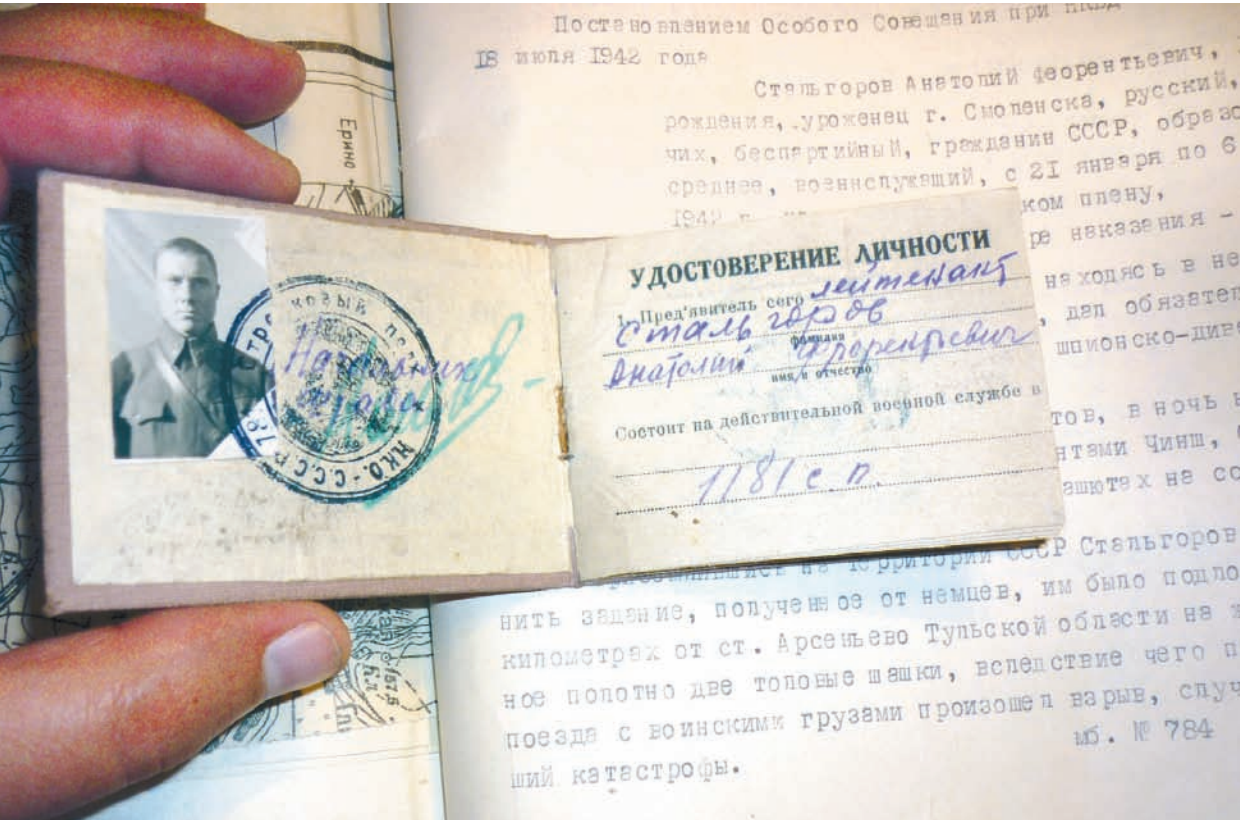 Постановлением Особого Совещания при НКВД
18 июля 1942 года
Стальгоров Анатолий Феорентьевич,
рождения, уроженец г. Смоленска, русский,
чих, беспартийный, гражданин СССР, образо
среднее, военнслужащий, с 21 января по 6
1942 г.
ком плену,
ре наказания -
находясь в не
, дал обязател
шпионско-диве
тов, в ночь н
нтами Чинш,
ашютах на со
на территории СССР Стальгоров
нить задание, полученное от немцев, им было подло
километрах от ст. Арсеньево Тульской области на ж
ное полотно две толовые шашки, вследствие чего п
поезда с воинскими грузами произошел взрыв, случ
ший катастрофы.
мб. № 784
Ерино
Кл.
Гла
НКО-СССР
Начальник
УДОСТОВЕРЕНИЕ ЛИЧНОСТИ
1. Пред'явитель сего лейтенант
Стальгоров
фамилия
Анатолий Флорентьевич
имя и отчество
Состоит на действительной военной службе в
1181 с.п.